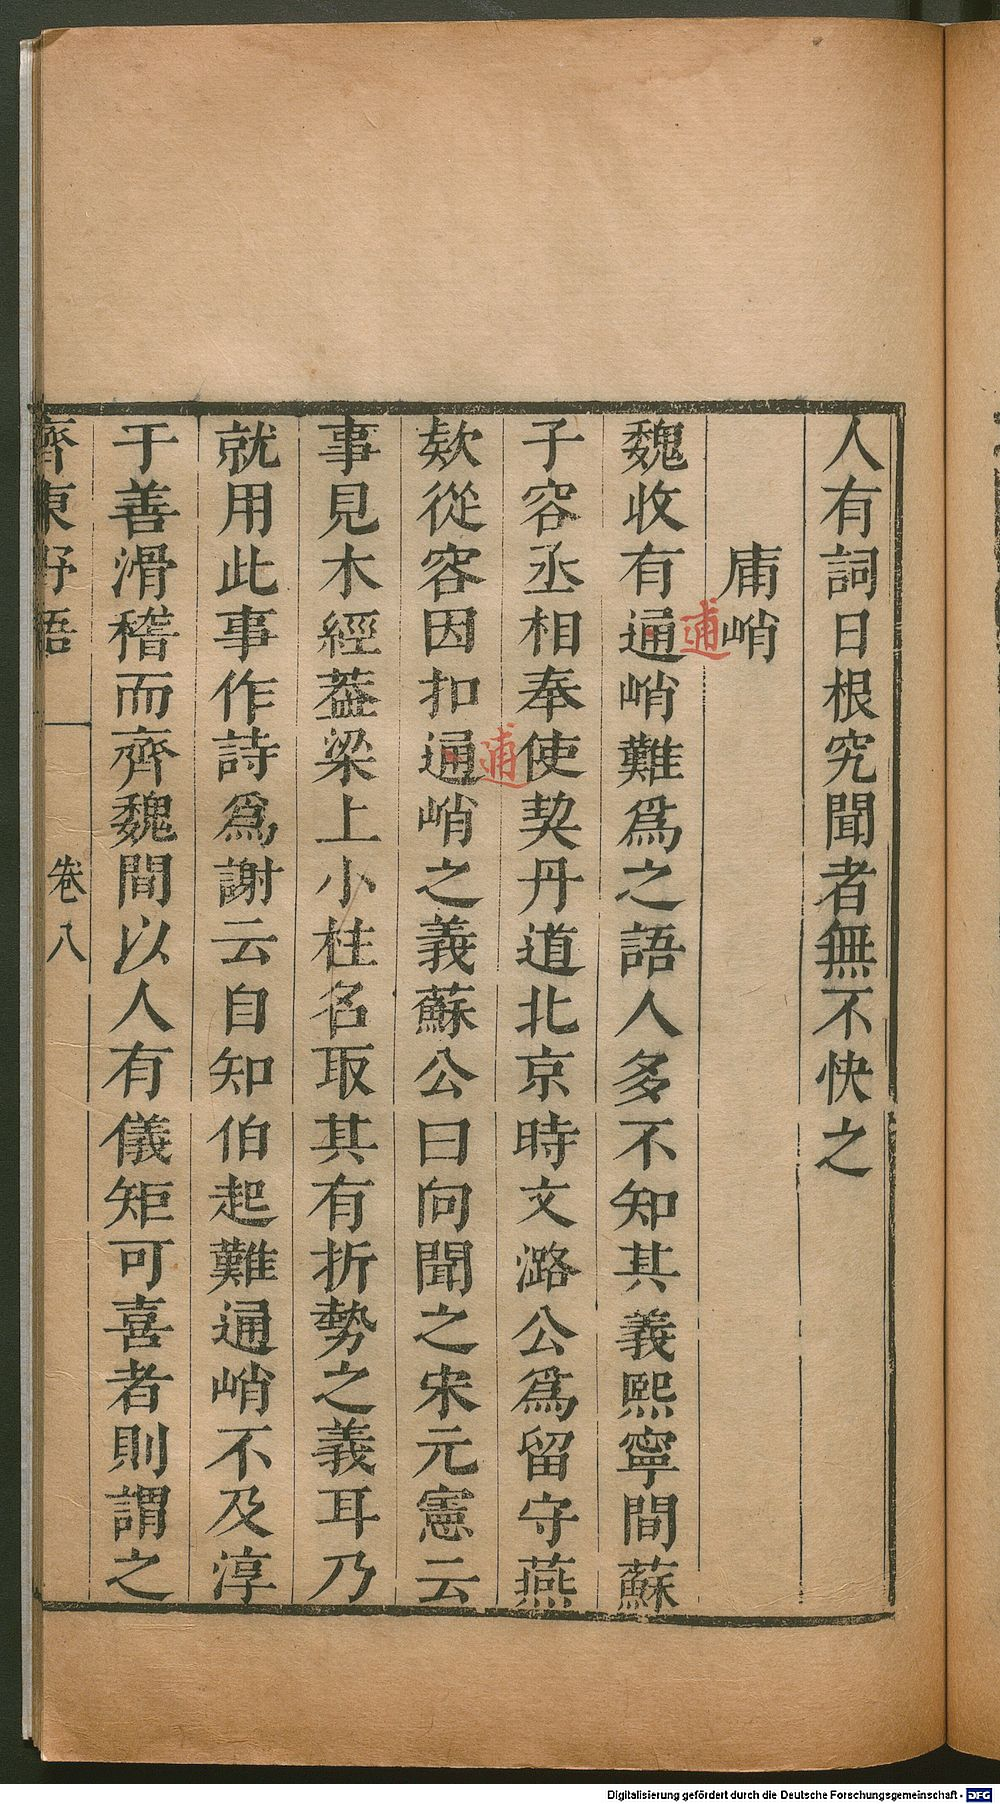 人有詞曰根究聞者無不快之
庯峭
魏收有逋峭難爲之語人多不知其義熙寧間蘇
逋
子容丞相奉使契丹道北京時文潞公爲留守燕
欵從容因扣逋峭之義蘇公曰向聞之宋元憲云
逋
事見木經葢梁上小柱名取其有折勢之義耳乃
就用此事作詩爲謝云自知伯起難逋峭不及淳
于善滑稽而齊魏間以人有儀矩可喜者則謂之
齊東野語 卷八
Digitalisierung gefördert durch die Deutsche Forschungsgemeinschaft - DFG